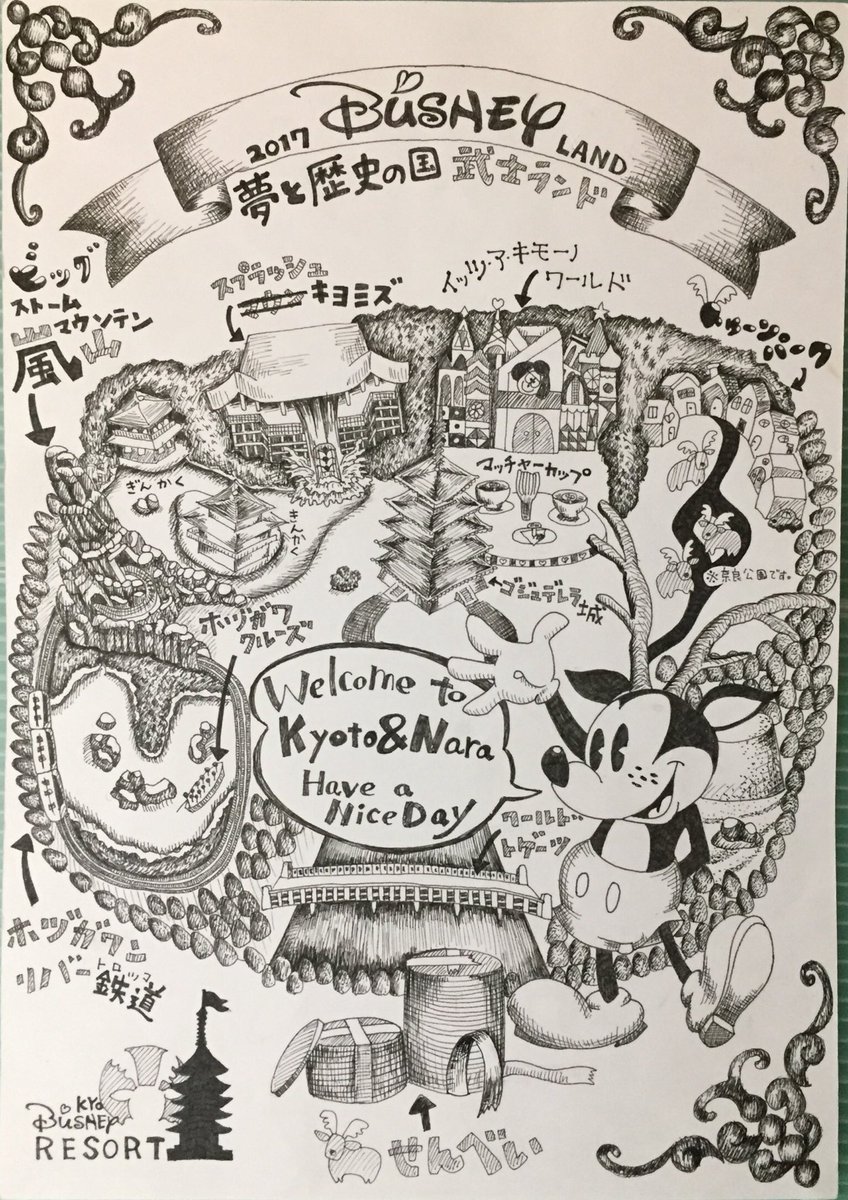 2017 BUSNEY LAND
夢と歴史の国 武士ランド
ビッグ
ストーム
マウンテン
嵐山
スプラッシュ
キヨミズ
イッツ・ア・キモーノ
ワールド
ぎんかく
きんかく
マッチャーカップ
※奈良公園です。
ゴジュデレラ城
ホヅガワ
クルーズ
Welcome to
Kyoto&Nara
Have a
Nice Day
ワールド
トゲーツ
ホヅガワン
トロッコ
リバー鉄道
KYO
BUSNEY
RESORT
せんべい